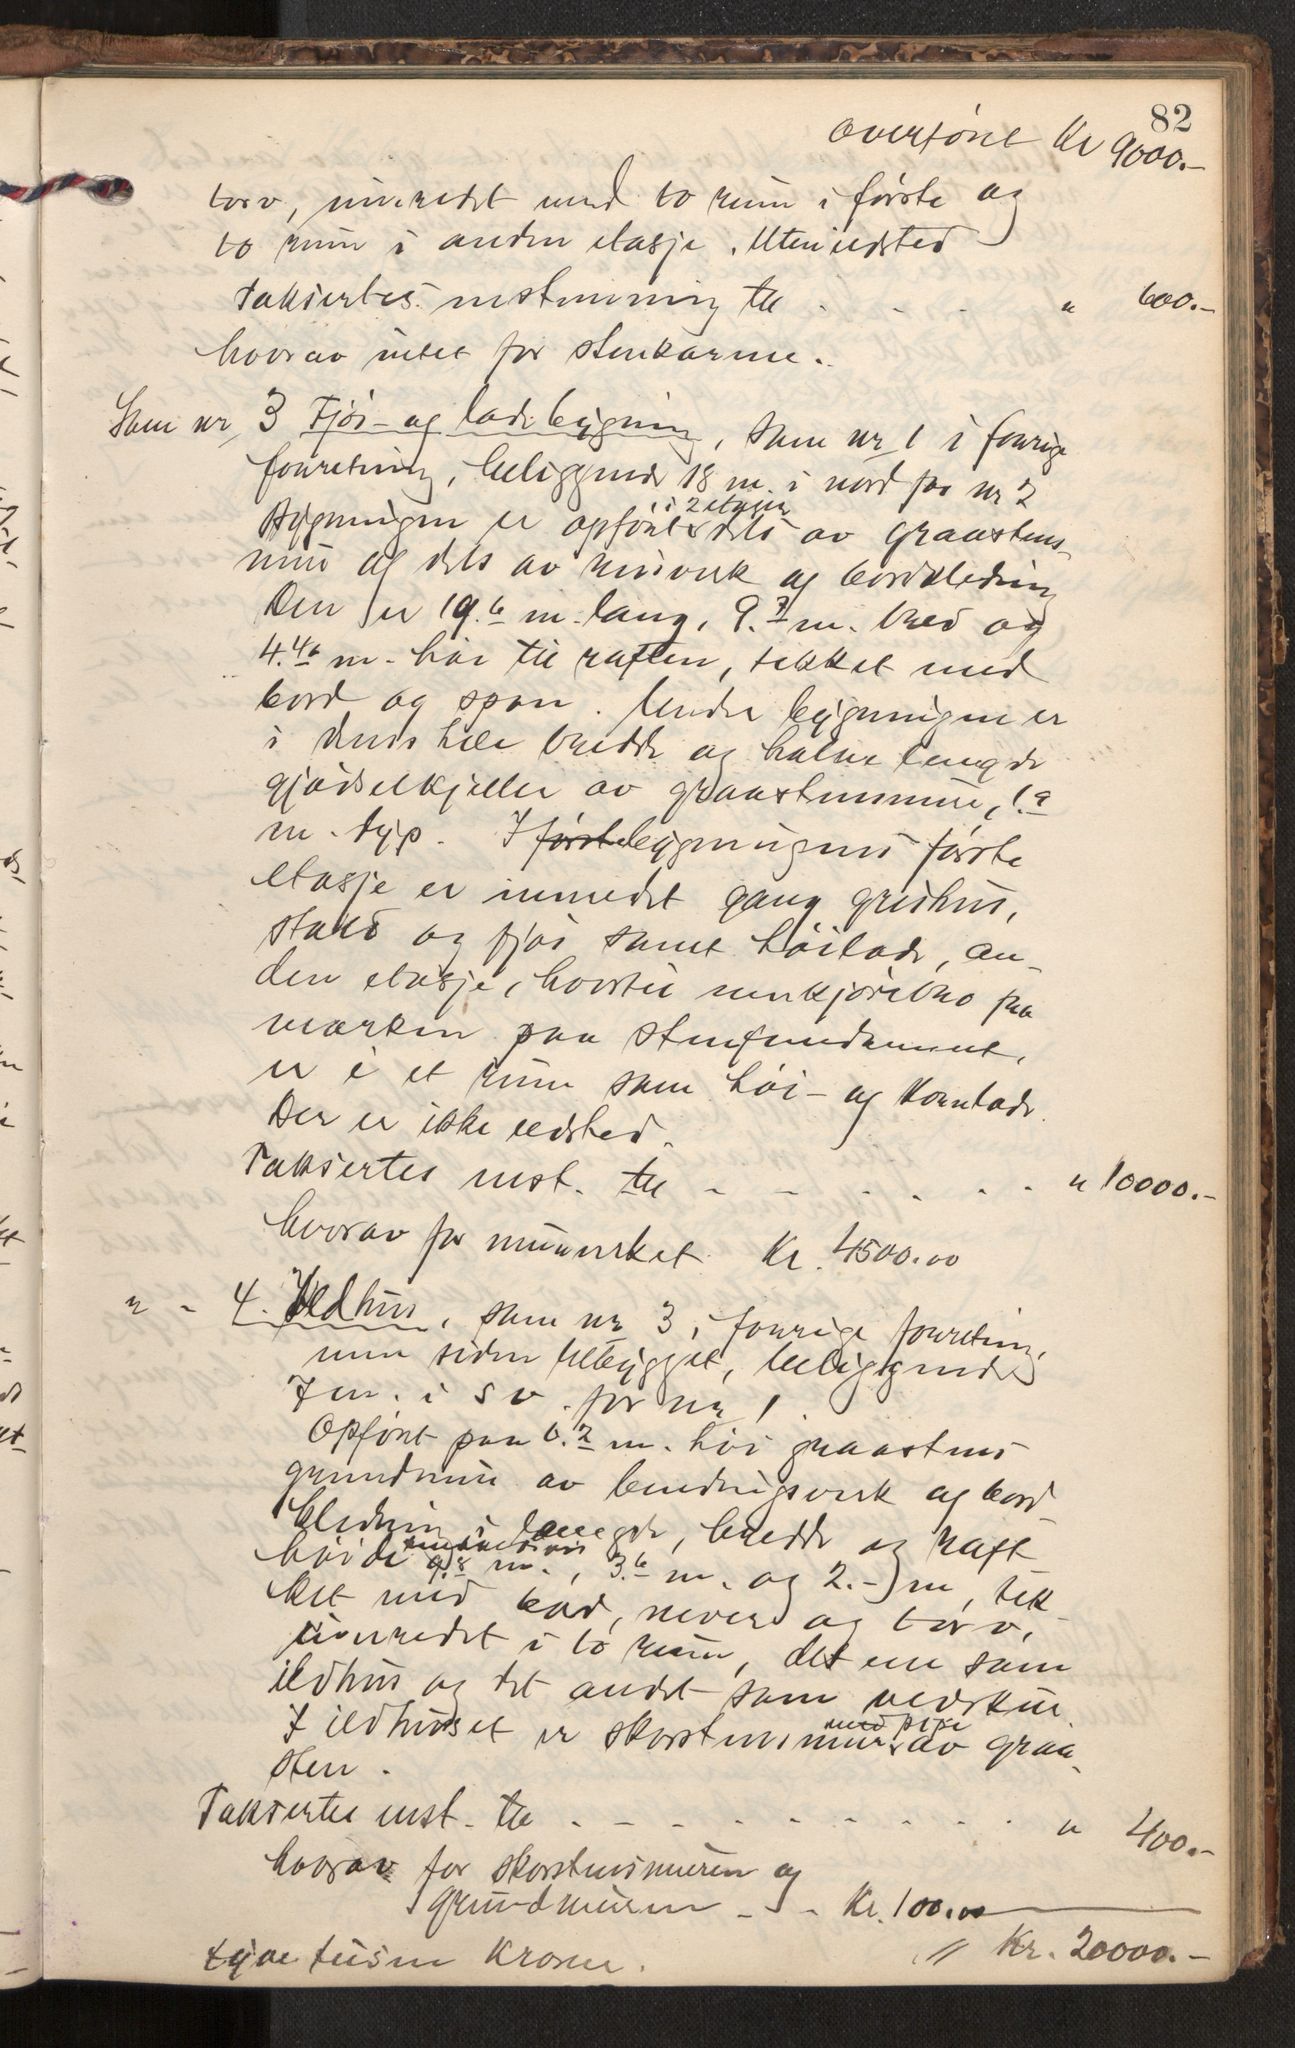 82
Overført Kr 9000.-
torv, innredet med to rum i første og
to rum i anden etasje. Uten ildsted
Taksertes enstemmig til . . . " 600.-
hvorav intet for stenkarene.
Som nr 3 Fjös- og ladebygning, som nr 1 i forrige
forretning, beliggende 18 m. i nord for nr 2
Bygningen er opført i 2 etasjer dels av graastens-
mur og dels av reisverk og bordkledning
Den er 19.6 m. lang, 9.7 m. bred og
4.40 m. höi til raften, tekket med
bord og spon. Under bygningen er
i dens hele bredde og halve lengde
gjødselkjeller av graastensmure, 1.9
m. dyp. I først bygningens første
etasje er innredet gang, grishus,
stald og fjös samt höilade, an-
den etasje, hvortil innkjörselbro fra
marken paa stenfundament,
er i et rum som höi- og kornlade.
Der er ikke ildsted.
Taksertes enst. til - - - . . . " 10000.-
hvorav for murverket Kr. 4500.00
" - 4. Ildhus, som nr 3 i forrige forretning,
men siden tilbygget, beliggende
7 m. i s v. for nr 1.
Opført paa 0.2 m. höi graastens
grundmur av bindingsverk og bord
kledning i lengde, bredde og raft
höide respektive 9.8 m., 3.6 m. og 2.- m, tek-
ket med bord, never og torv,
innredet i to rum, det ene som
ildhus og det andet som vedskur.
I ildhuset er skorstensmur med pipe av graa-
sten.
Taksertes enst. til . - - . . . . . . " 400.-
hvorav for skorstensmuren og
grundmuren - - - Kr. 100.00
tyve tusen Kroner. // Kr. 20000.-